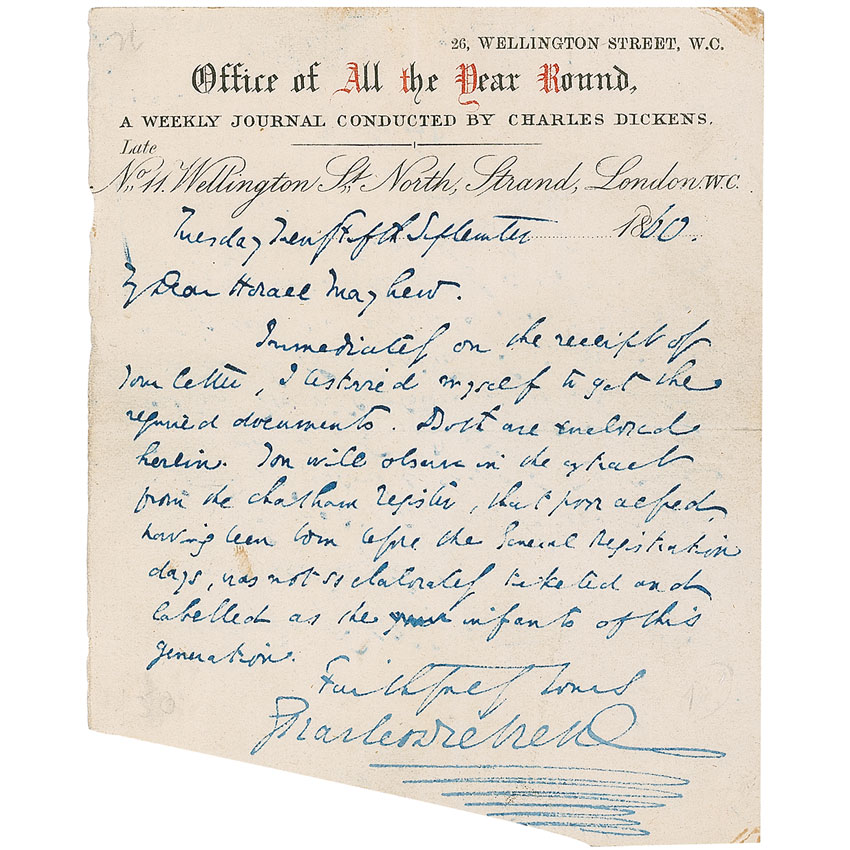 26, WELLINGTON STREET, W.C.
Office of All the Year Round,
A WEEKLY JOURNAL CONDUCTED BY CHARLES DICKENS.
Late
No. 11. Wellington St. North, Strand, London. W.C.
Tuesday Twenty fifth September 1860.
My Dear Horace Mayhew.
Immediately on the receipt of
Your letter, I bestirred myself to get the
required documents. Both are enclosed
herein. You will observe in the extract
from the Chatham Register, that poor Alfred,
having been born before the General Registration
days, was not so elaborately ticketed and
labelled as the infants of this
generation.
Faithfully Yours
Charles Dickens